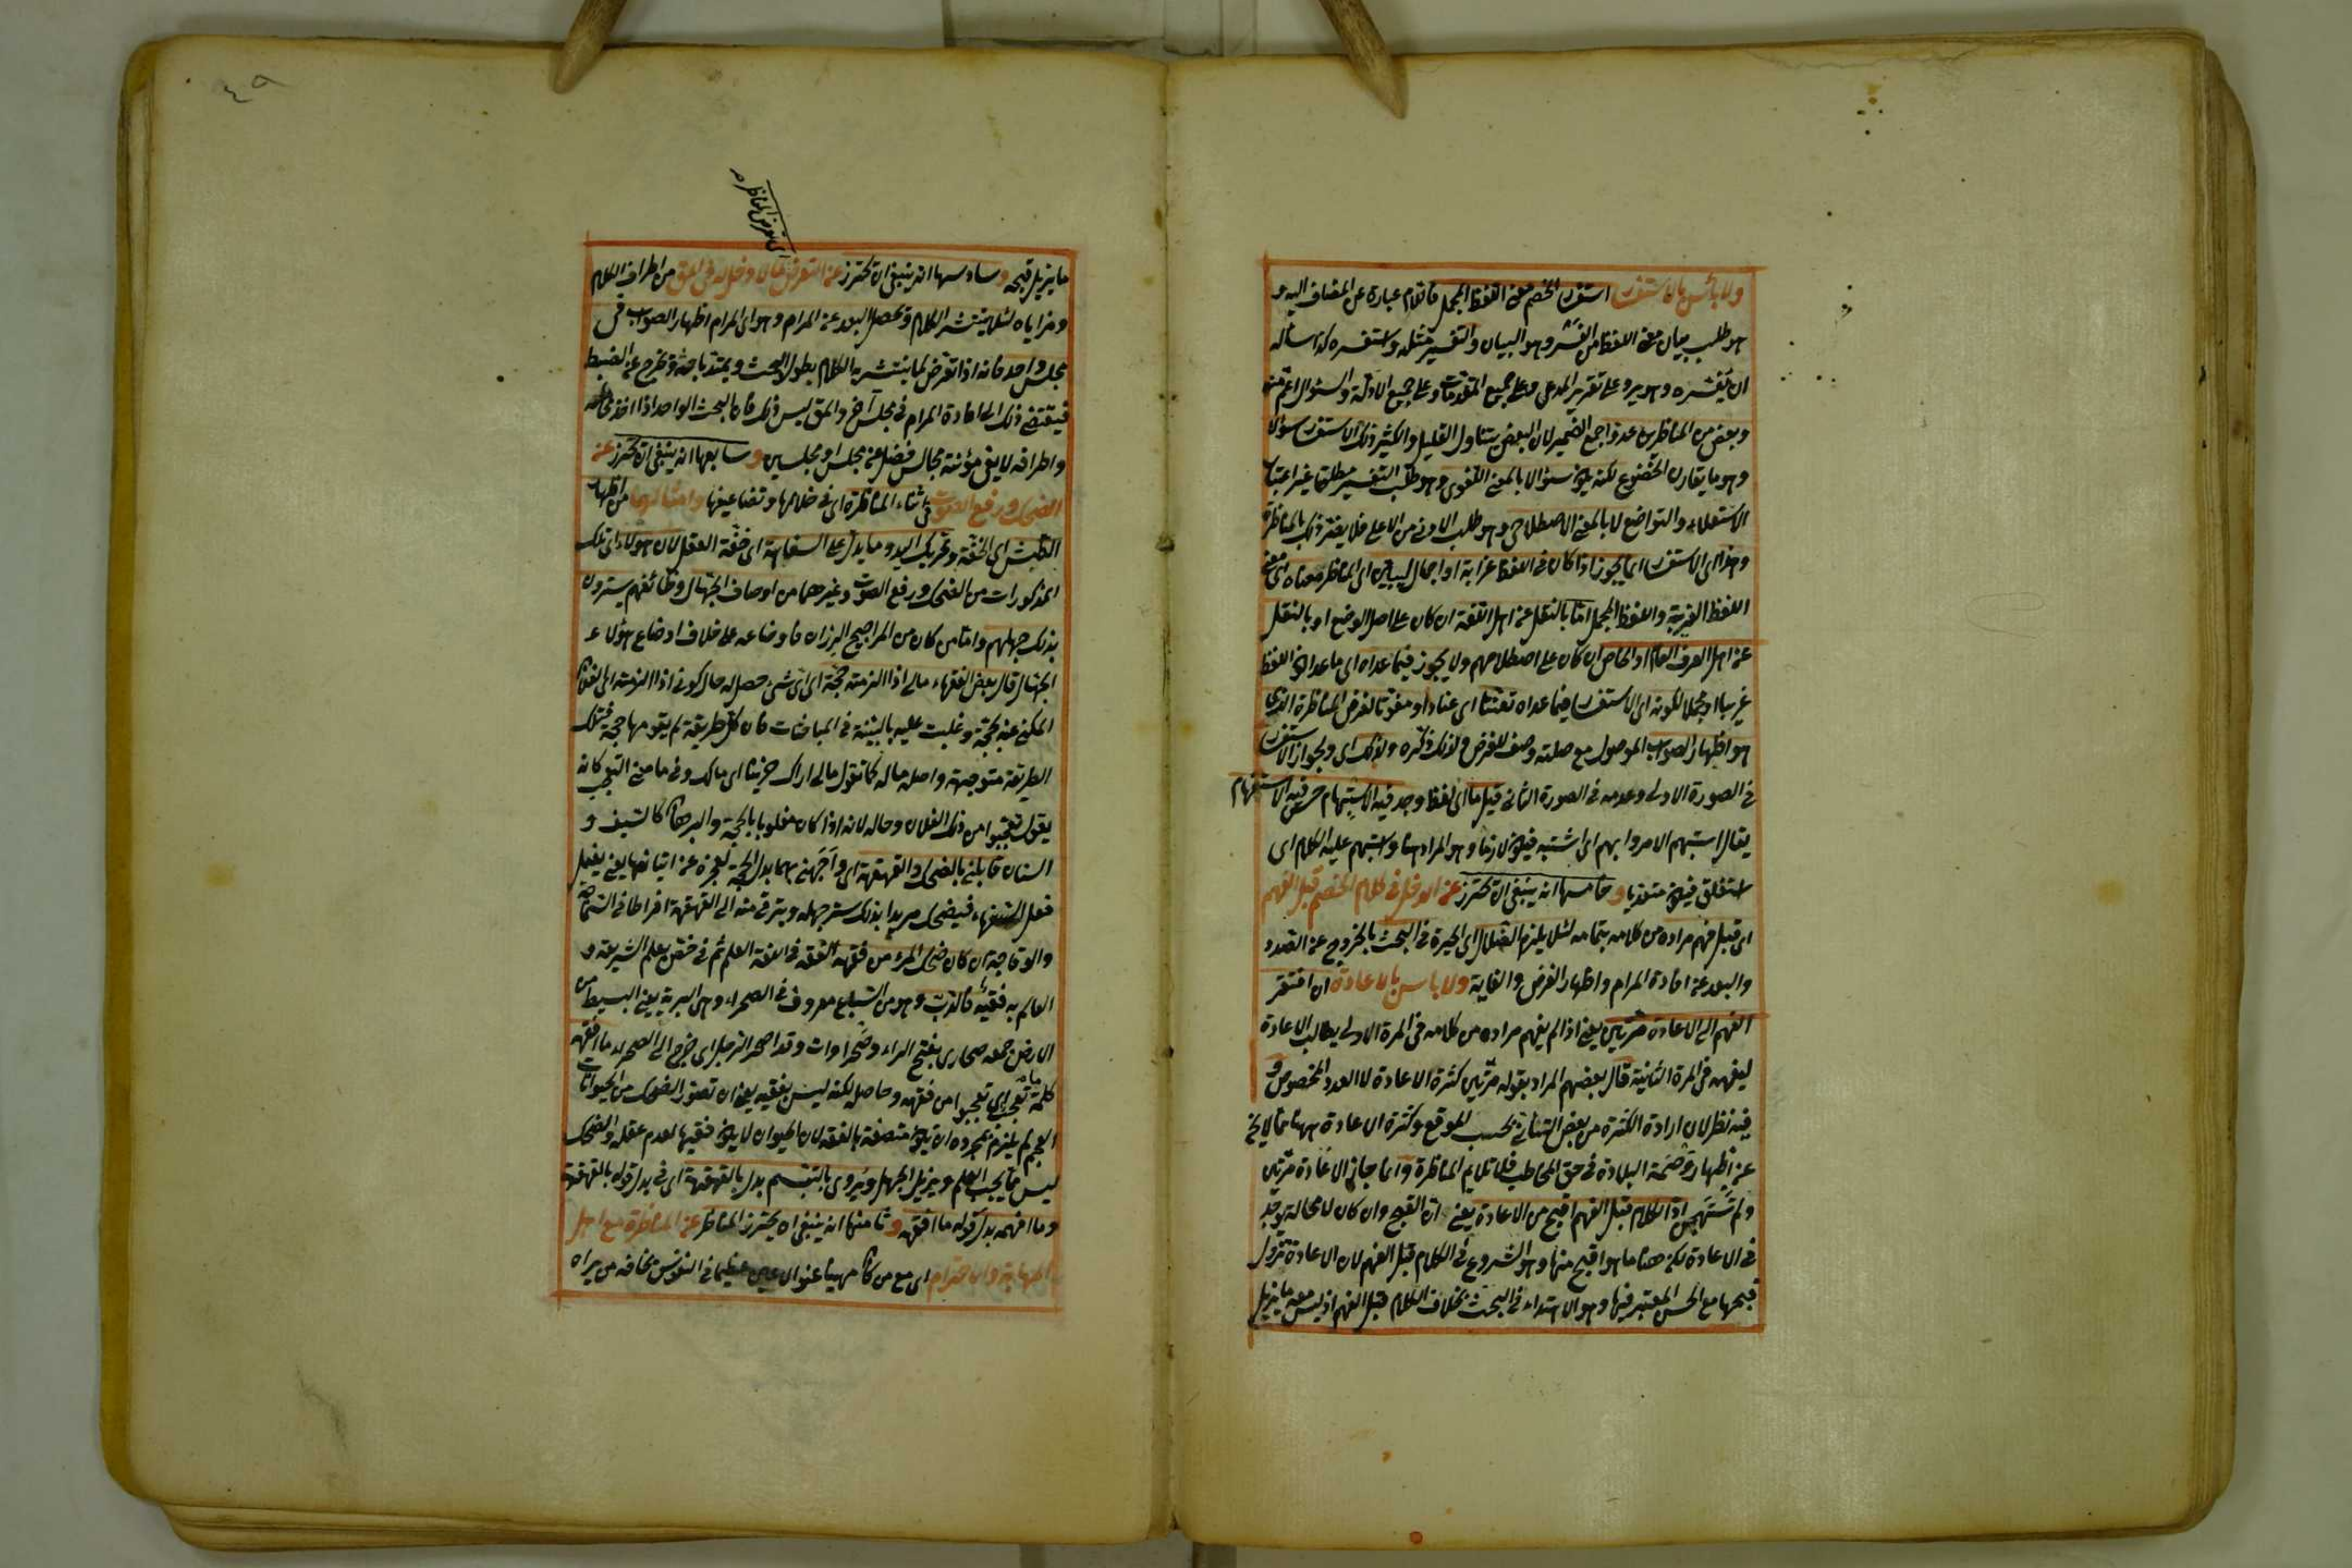 ولا بأس بالاستفسار استفسار الخصم معنى اللفظ المجمل فاللام عبارة عن المضاف اليه و
هو طلب بيان معنى اللفظ من الفسر وهو البيان والتفسير مثله واستفسره كذا سأله
ان يفسره وهو يرد على تقرير المدعى وعلى جميع المقدمات وعلى جميع الادلة والسؤال اعم منه
وبعض من المناظرين عدوا جمع الضمير لان البعض يتناول القليل والكثير ذلك الاستفسار سؤالا
وهو ما يقارن الخضوع لكنه يكون سؤالا بالمعنى اللغوى وهو طلب التفسير مطلقا بغير اعتبار
الاستعلاء والتواضع لا بالمعنى الاصطلاحى وهو طلب الادنى من الاعلى فلا يضر ذلك بالمناظرة
وهذا اى الاستفسار انما يجوز اذا كان فى اللفظ غرابة او اجمال ليبين اى المناظر معناه اى معنى
اللفظ الغريب واللفظ المجمل اما بالنقل عن اهل اللغة ان كان على اصل الوضع او بالنقل
عن اهل العرف العام او الخاص ان كان على اصطلاحهم ولا يجوز فيما عداه اى ما عدا كون اللفظ
غريبا او مجملا لكونه اى الاستفسار فيما عداه تعنتا اى عنادا ومفوتا لغرض المناظرة الذى
هو اظهار الصواب الموصول مع صلته وصف للغرض ولذلك ذكره ولذلك اى ولجواز الاستفسار
فى الصورة الاولى وعدمه فى الصورة الثانى قيل ما اى لفظ وجد فيه الاستبهام حسن فيه الاستفهام
يقال استبهم الامر وابهم اى اشتبه فيكون لازما وهو المراد هنا واستبهم عليه الكلام اى
استغلق فيكون متعديا و خامسها انه ينبغى ان يحترز عن الدخل فى كلام الخصم قبل الفهم
اى قبل فهم مراده من كلامه بتمامه لئلا يلزم الضلال اى الحيرة فى البحث بالخروج عن الصدد
والبعد عن افادة المرام واظهار الغرض والغاية ولا باس بالاعادة ان افتقر
الفهم الى الاعادة مرتين يعنى اذا لم يفهم مراده من كلامه فى المرة الاولى يطالب الاعادة
ليفهم فى المرة الثانية قال بعضهم المراد بقوله مرتين كثرة الاعادة لا العدد المخصوص و
فيه نظر لان ارادة الكثرة من بعض التثانى بحسب الموقع وكثرة الاعادة ههنا مما لا يخ
عن اظهار وصمة البلادة فى حق المخاطب فلا تلايم المناظرة وانما جاز الاعادة مرتين
ولم تستهجن اذ الكلام قبل الفهم اقبح من الاعادة يعنى ان القبح وان كان لا محالة يوجد
فى الاعادة لكن هنا ما هو اقبح منها وهو الشروع فى الكلام قبل الفهم لان الاعادة تزول
قبحها مع الحسن المعتبر فيها وهو الاهتداء فى البحث بخلاف الكلام قبل الفهم اذ ليس معه ما يزيل
ما يزيل قبحه وسادسها انه ينبغى ان يحترز عن التعرض لما لا دخل له فى المق من اطراف الكلام
ومزاياه لئلا ينتشر الكلام ويحصل البعد عن المرام وهو اى المرام اظهار الصواب فى
مجلس واحد فانه اذا تعرض لما ينتشر به الكلام يطول البحث ويمتد باحثه ويخرج عن الضبط
فيقتضى ذلك الى اعادة المرام فى مجلس آخر والمق ليس ذلك فان البحث الواحد اذا اخذ
واطرافه لا يفى مؤنته مجالس فضلا عن مجلس او مجلسين و سابعها انه ينبغى ان يحترز عن
الضحك ورفع الصوت فى اثناء المناظرة اى فى خلالها وتضاعيفها وامثالهما من اظهار
الطيش اى الخفة وتحريك اليد وما يدل على السفاهة اى خفة العقل لان هؤلاء اى تلك
المذكورات من الضحك ورفع الصوت وغيرهما من اوصاف الجهال وظائفهم يسترون
بذلك جهلهم واما من كان من المراجيح الرزان فاوضاعه على خلاف اوضاع هؤلاء
الجهال قال بعض الفقهاء مالى اذا الزمته حجة اى اى شئ حصل له حال كونى اذا الزمته اى الفلان
المكنى عنه بحجة وغلبت عليه بالبينة فى المباحثات فان كل طريقة لم يقومها حجة فتلك
الطريقة متوجهة واصله ماله كما تقول مالى اراك حزينا اى مالك وفى ما معنى التعجب كانه
يقول تعجبوا من ذلك الفلان وحاله لانه اذا كان مغلوبا بالحجة والبرهان كالسيف و
السنان قابلنى بالضحك والقهقهة اى واجهنى بهما بدل الحجة لعجزه عن اتيانها يعنى يفعل
فعل السفهاء فيضحك مريدا بذلك ستر جهله ويترقى منه الى القهقهة افراطا فى
والوقاحة ان كان ضحك المرء من فقهه الفقه فى اللغة العلم ثم فى خص بعلم الشريعة و
العالم به فقيه فالدب وهو من السباع معروف فى الصحراء وهى البرية يعنى البسيط من
الارض جمعه صحارى بفتح الراء وصحراوات وقد اصحر الرجل اى خرج الى الصحراء ما افقهه
كلمة ما تعجب اى تعجبوا من فقهه وحاصله لكنه ليس بفقيه يعنى ان تصور الضحك من الحيوانات
العجم لم يلزم بمجرده ان يكون متصفة بالفقه لان الحيوان لا يكون فقيها لعدم عقله والضحك
ليس مما يجلب العلم ويزيل الجهل ويروى بالتبسم بدل بالقهقهة اى فى بدل قوله بالقهقهة
وما افهمه بدل قوله ما افقهه و ثامنها انه ينبغى ان يحترز المناظر عن المناظرة مع اهل
المهابة والاحترام اى مع من كان مهيبا عظيما فى النفوس يخافه من يراه